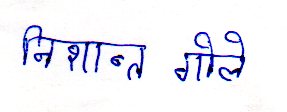 निशान्त गोले